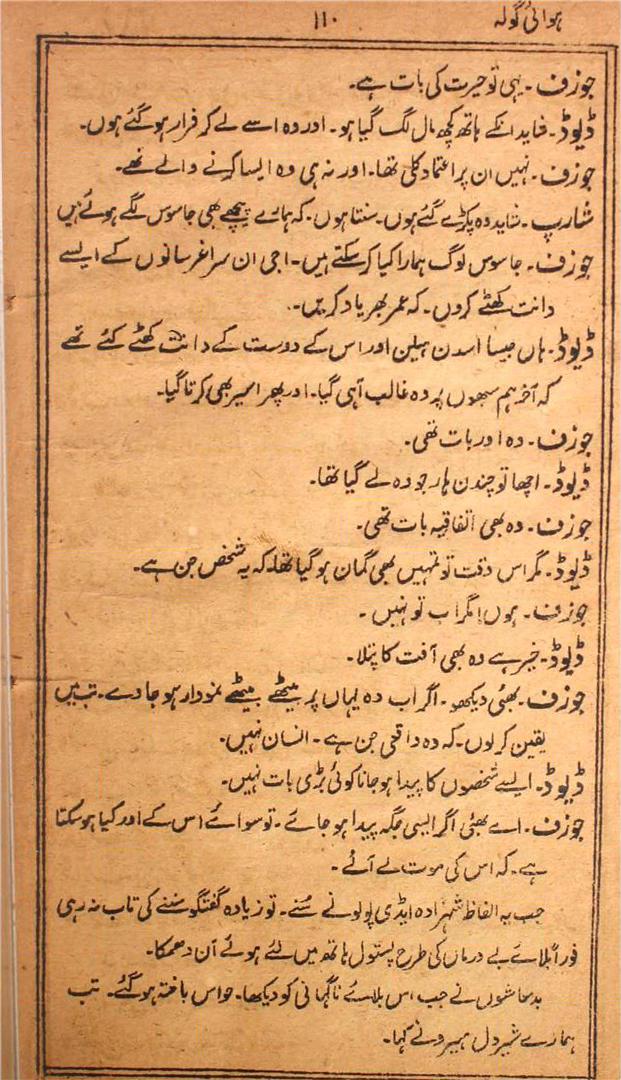 ہوائی گولہ
۱۱۰
جوزف۔ یہی تو حیرت کی بات ہے۔
ڈیوڈ۔ شاید انکے ہاتھ کچھ مال لگ گیا ہو۔ اور وہ اسے لے کر فرار ہو گئے ہوں۔
جوزف۔ نہیں ان پر اعتماد کلی تھا۔ اور نہ ہی وہ ایسا کرنے والے تھے۔
شارپ۔ شاید وہ پکڑے گئے ہوں۔ سنتا ہوں۔ کہ ہمارے پیچھے بھی جاسوس لگے ہوئے ہیں
جوزف۔ جاسوس لوگ ہمارا کیا کر سکتے ہیں۔ اجی ان سراغرسانوں کے ایسے
دانت کھٹے کروں۔ کہ عمر بھر یاد کریں۔
ڈیوڈ۔ ہاں جیسا اسدن ہیلن اور اس کے دوست کے دانت کھٹے کئے تھے
کہ آخر ہم سبھوں پر وہ غالب آہی گیا۔ اور پھر اسیر بھی کرتا گیا۔
جوزف۔ وہ اور بات تھی۔
ڈیوڈ۔ اچھا تو چندن ہار جو وہ لے گیا تھا۔
جوزف۔ وہ بھی اتفاقیہ بات تھی۔
ڈیوڈ۔ مگر اس وقت تو تمہیں بھی گمان ہو گیا تھا۔ کہ یہ شخص جن ہے۔
جوزف۔ ہوں! مگر اب تو نہیں۔
ڈیوڈ۔ خیر ہے وہ بھی آفت کا پتلا۔
جوزف۔ بھئی دیکھو۔ اگر اب وہ یہاں پر بیٹھے بیٹھے نمودار ہو جاوے۔ تب میں
یقین کر لوں۔ کہ وہ واقعی جن ہے۔ انسان نہیں۔
ڈیوڈ۔ ایسے شخصوں کا پیدا ہو جانا کوئی بڑی بات نہیں۔
جوزف۔ اے بھئی اگر ایسی جگہ پیدا ہو جائے۔ تو سوائے اس کے اور کیا ہو سکتا
ہے۔ کہ اس کی موت لے آئے۔
جب یہ الفاظ شہزادہ ایڈی پولو نے سُنے۔ تو زیادہ گفتگو سننے کی تاب نہ رہی
فوراً بلائے بے درماں کی طرح پستول ہاتھ میں لئے ہوئے آن دھمکا۔
بدمعاشوں نے جب اس بلائے ناگہانی کو دیکھا۔ حواس باختہ ہو گئے۔ تب
ہمارے شیر دل ہیرو نے کہا۔